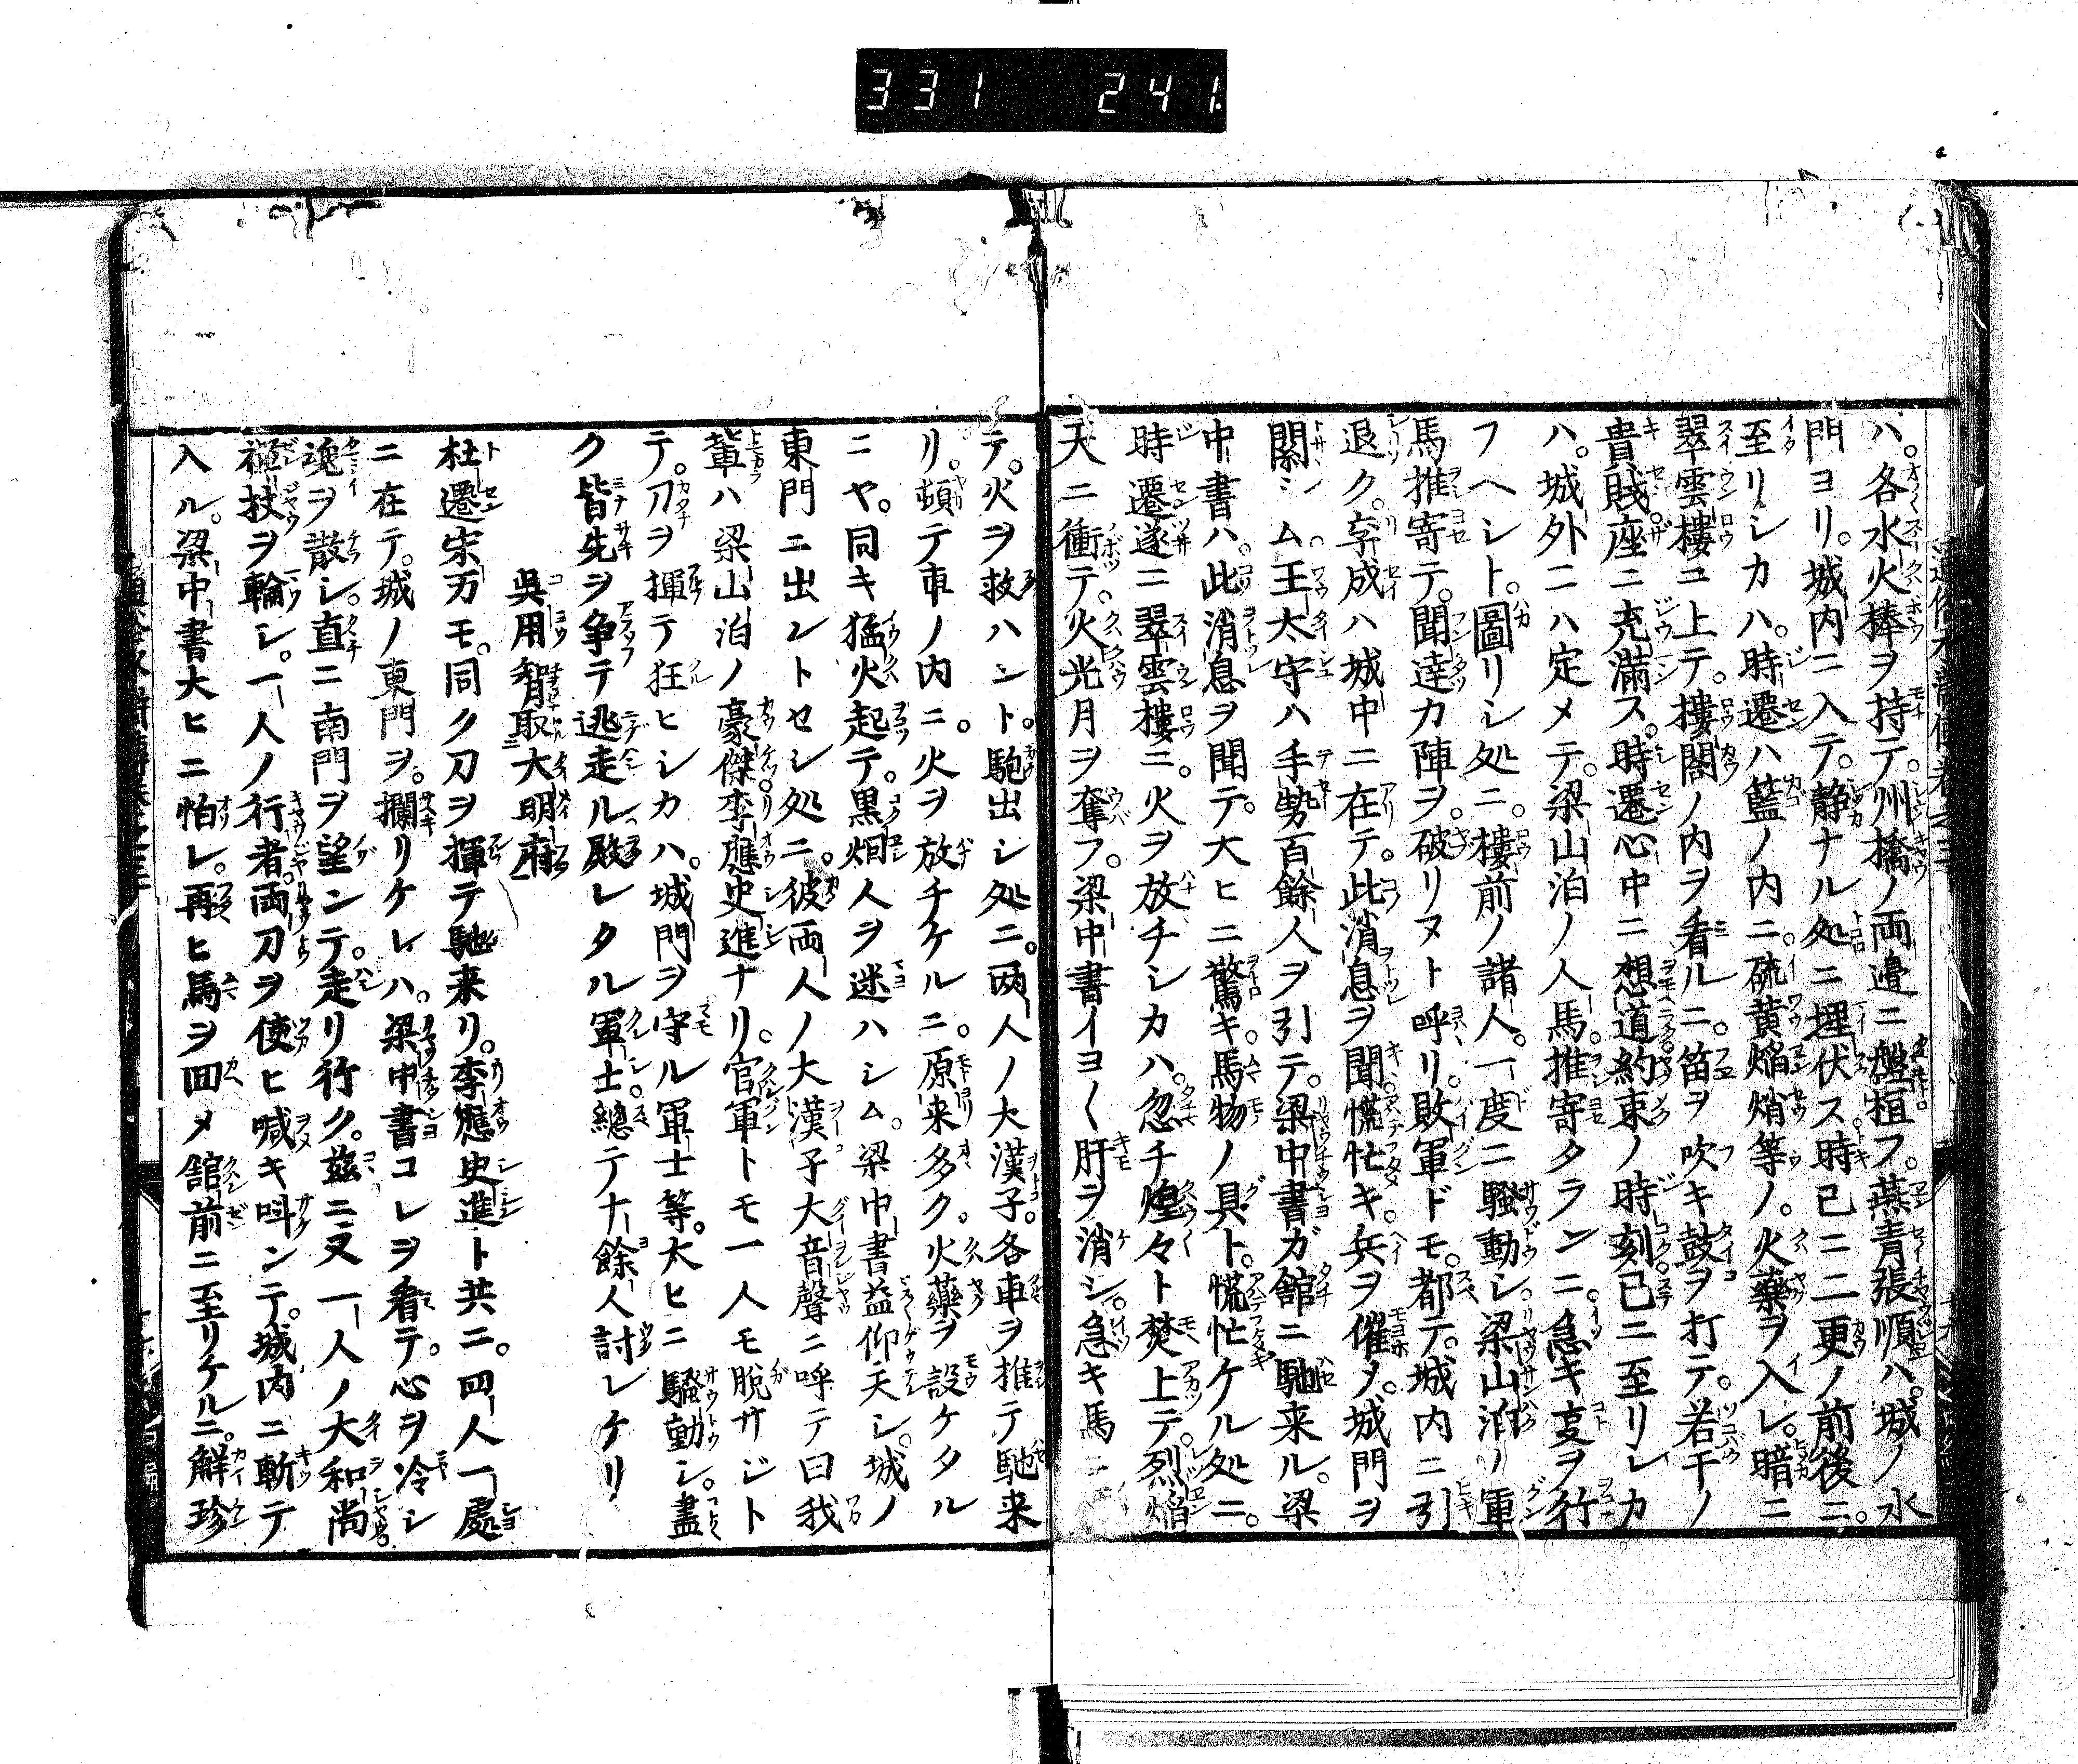 331 241.
ハ。各水火棒ヲ持テ。州橋ノ両邉ニ盤桓フ。燕青張順ハ。城ノ水
門ヨリ。城内ニ入テ。静ナル処ニ埋伏ス時已ニ二更ノ前後ニ。
至リシカハ。時遷ハ籃ノ内ニ。硫黄焔焇等ノ。火藥ヲ入レ。暗ニ
翠雲樓ニ上テ。樓閣ノ内ヲ看ルニ。笛ヲ吹キ鼓ヲ打テ。若干ノ
貴賎座ニ充滿ス。時遷心中ニ想道約束ノ時刻已ニ至リシカ
ハ。城外ニハ定メテ。梁山泊ノ人馬。推寄タランニ。急キ支ヲ行
フヘシト。圖リシ処ニ。樓前ノ諸人。一度ニ騒動シ。梁山泊ノ軍
馬推寄テ。聞達カ陣ヲ。破リヌト呼リ。敗軍ドモ。都テ。城内ニ引
退ク。李成ハ城中ニ在テ。此消息ヲ聞慌忙キ。兵ヲ催メ。城門ヲ
關シム。王太守ハ手勢百餘人ヲ引テ。梁中書ガ舘ニ馳来ル。梁
中書ハ。此消息ヲ聞テ。大ヒニ驚キ。馬物ノ具ト。慌忙ケル処ニ。
時遷遂ニ翠雲樓ニ。火ヲ放チシカハ。忽チ煌々ト焚上テ。烈焔
天ニ衝テ。火光月ヲ奪フ。梁中書イヨ〱肝ヲ消シ。急キ馬ニ
テ。火ヲ救ハント。駈出シ処ニ。两人ノ大漢子。各車ヲ推テ馳来
リ。頓テ車ノ内ニ。火ヲ放チケルニ。原来多ク。火藥ヲ設ケタル
ニヤ。同キ猛火起テ。黒烟人ヲ迷ハシム。梁中書益仰天シ。城ノ
東門ニ出レトセシ処ニ。彼両人ノ大漢子大音聲ニ呼テ曰我
輩ハ梁山泊ノ豪傑。李應史進ナリ。官軍トモ一人モ脱サジト
テ。刀ヲ揮テ狂ヒシカハ。城門ヲ守ル軍士等。太ヒニ騒動シ。盡
ク皆先ヲ争テ逃走ル殿レタル軍士。總テ十餘人討レケリ
呉用智取大明府
杜遷宋万モ。同ク刀ヲ揮テ馳来リ。李應史進ト共ニ。四人一處
ニ在テ。城ノ東門ヲ。攔リケレハ。梁中書コレヲ看テ。心ヲ冷シ
魂ヲ散シ。直ニ南門ヲ望ンテ。走リ行ク。茲ニ又一人ノ大和尚
禅杖ヲ輪シ。一人ノ行者。両刀ヲ使ヒ喊キ呌ンテ。城内ニ斬テ
入ル。梁中書大ヒニ怕レ。再ヒ馬ヲ囬メ舘前ニ至リケルニ。解珍